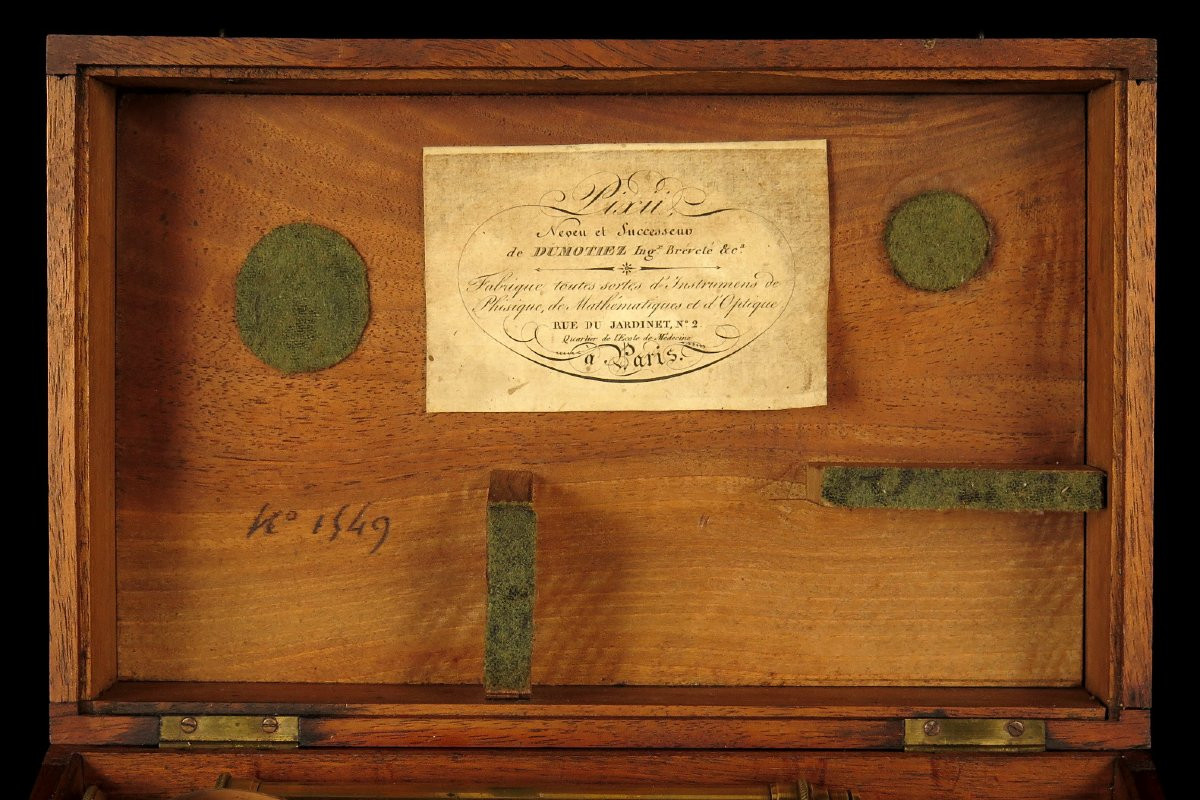 Pixii,
Neveu et Successeur
de DUMOTIEZ Ing.r Breveté &c.a
Fabrique toutes sortes d'Instrumens de
Phisique, de Mathématiques et d'Optique
RUE DU JARDINET, N.o 2.
Quartier de l'Ecole de Médecine
a Paris.
No 1549